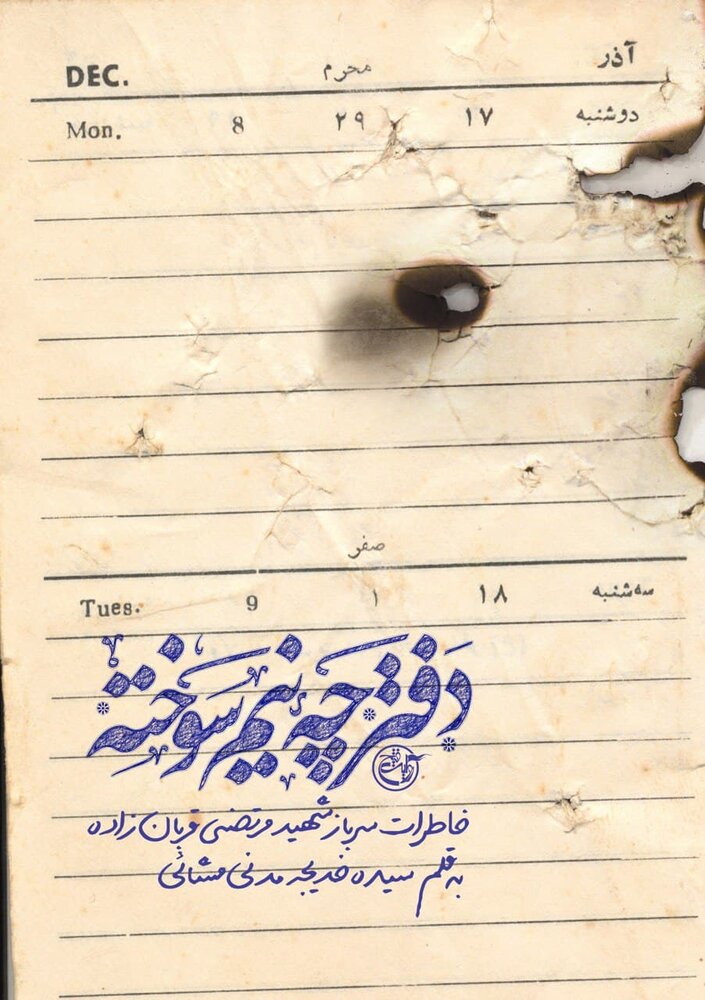 آذر محرم DEC.
دوشنبه ۱۷ ۲۹ 8 Mon.
صفر
سه‌شنبه ۱۸ ۱ 9 Tues.
دفترچه نیم سوخته
خاطرات سرباز شهید مرتضی قربان زاده
به قلم سیده خدیجه مدنی مشائی